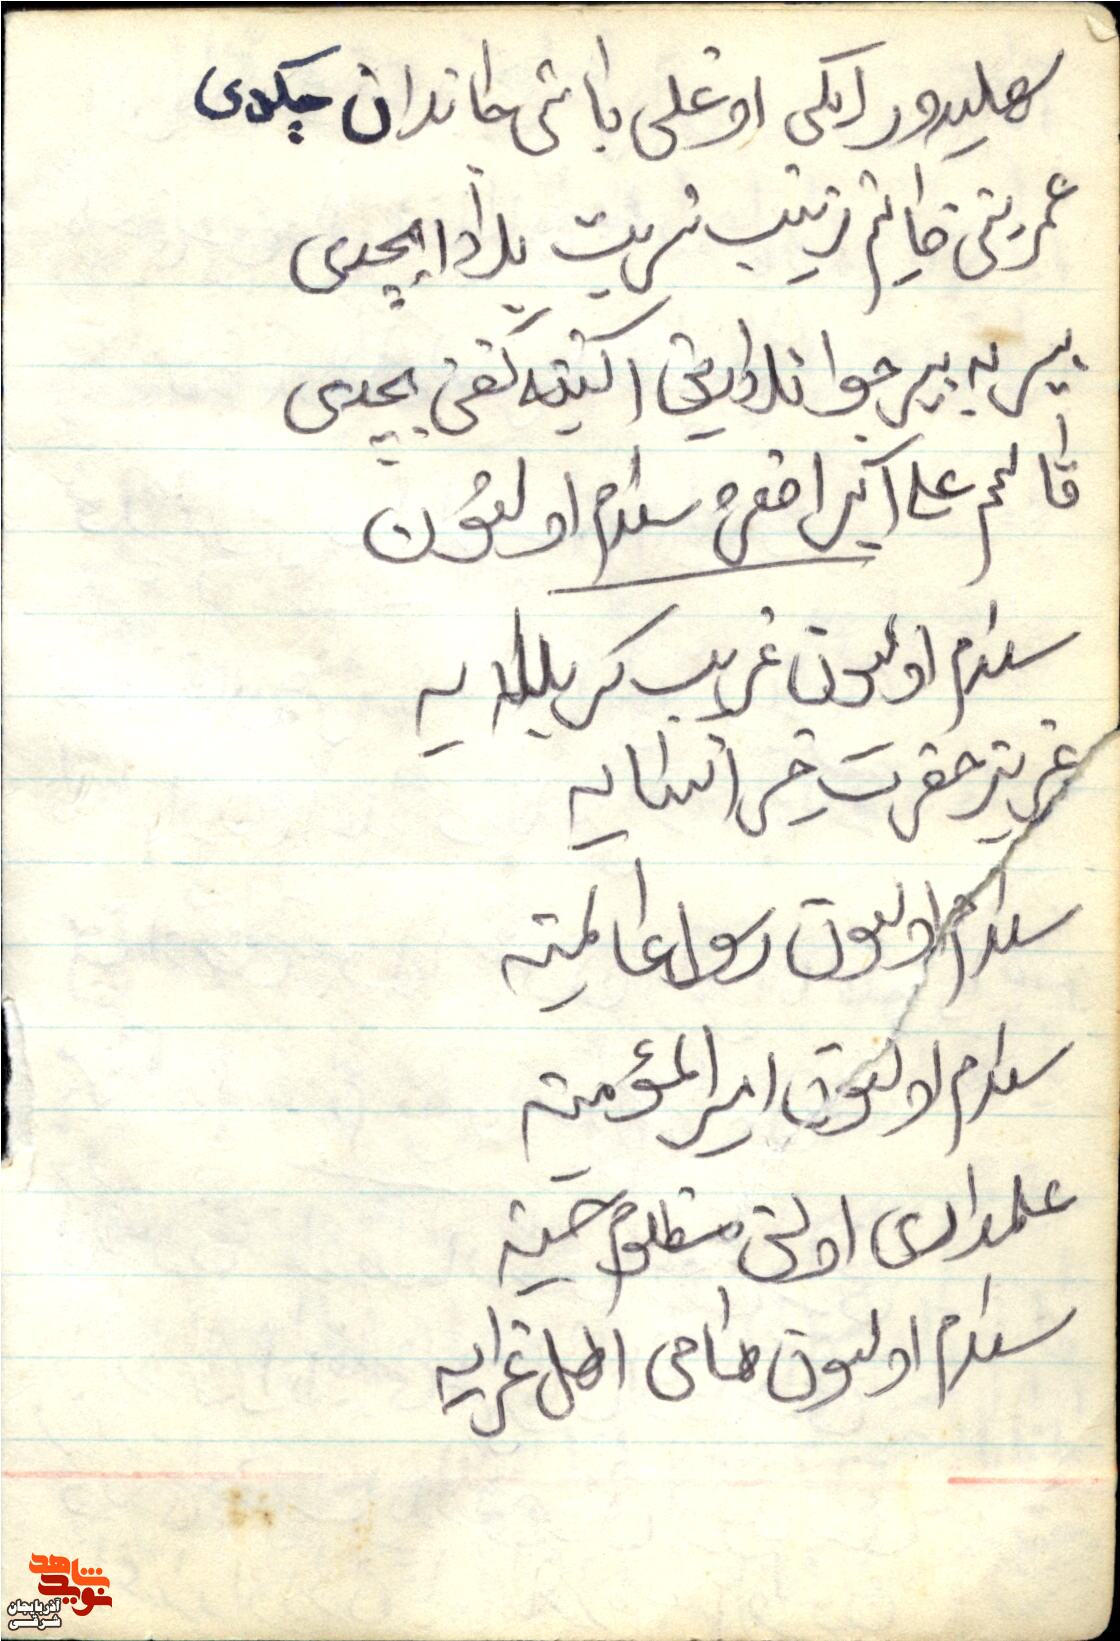 ایکی اوغلی باشی جاندان چکدی
زینب شربت
بیر به بیر جوانلارینی اکینه کفن بچدی
قاسم علی اکبر اصغره سلام اولسون
سلام اولسون غریب کربلایه
عزیز حضرت خیر النسایه
سلام اولسون رسول عالمینه
سلام اولسون امیرالمؤمینه
علمداری اولی مظلوم حسینه
سلام اولسون تمامی اهل عزایه
نوید شاهد
آذربایجان شرقی